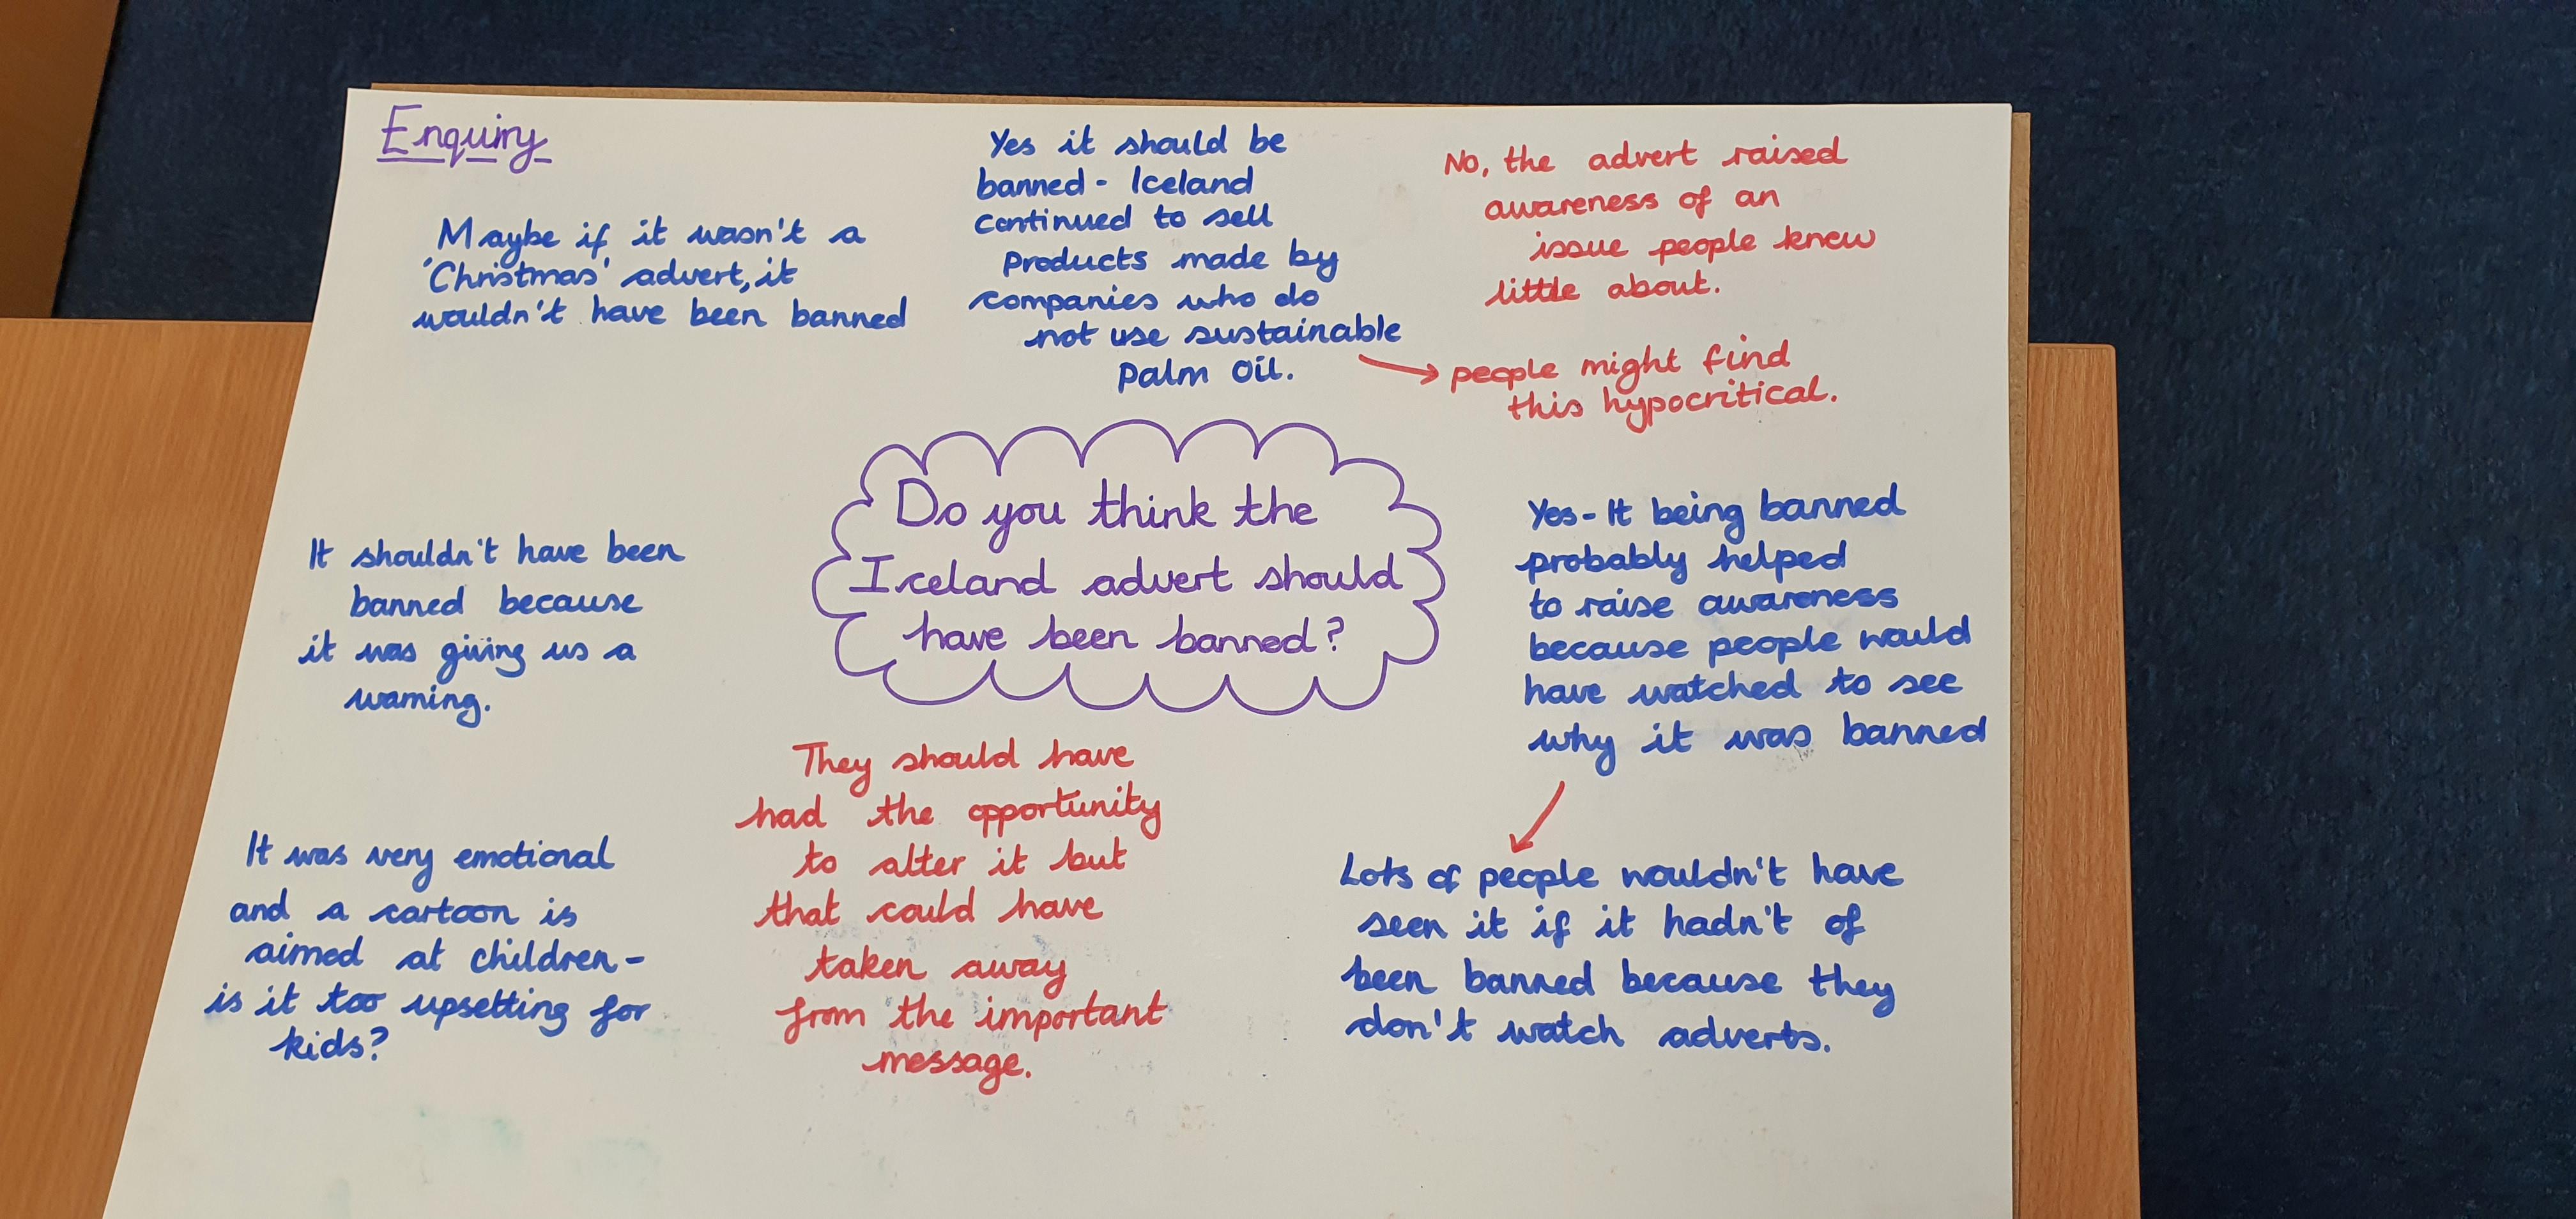 Enquiry
Maybe if it wasn't a
'Christmas' advert, it
wouldn't have been banned
Yes it should be
banned - Iceland
continued to sell
products made by
companies who do
not use sustainable
palm oil.
No, the advert raised
awareness of an
issue people knew
little about.
people might find
this hypocritical.
Do you think the
Iceland advert should
have been banned?
It shouldn't have been
banned because
it was giving us a
warning.
Yes - It being banned
probably helped
to raise awareness
because people would
have watched to see
why it was banned
It was very emotional
and a cartoon is
aimed at children -
is it too upsetting for
kids?
They should have
had the opportunity
to alter it but
that could have
taken away
from the important
message.
Lots of people wouldn't have
seen it if it hadn't of
been banned because they
don't watch adverts.